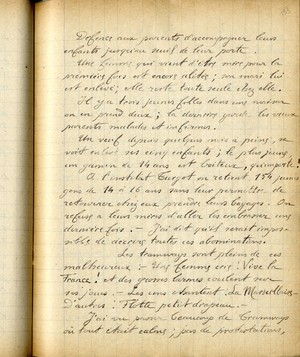 Défense aux parents d'accompagner leurs
enfants jusqu'au seuil de leur porte.
Une femme qui vient d'être mère pour la
première fois est encore alitée; son mari lui
est enlevé; elle reste toute seule chez elle.
Il y a trois jeunes filles dans une maison
on en prend deux; la dernière garde les vieux
parents malades et infirmes.
Un veuf depuis quelques mois à peine, se
voit enlever ses cinq enfants; le plus jeune
un gamin de 14 ans est boiteux, qu'importe!
A l'institut Turgot on retient 154 jeunes
gens de 14 à 16 ans sans leur permettre de
retourner chez eux prendre leurs bagages. On
refuse à leurs mères d'aller les embrasser une
dernière fois. - J'ai dit qu'il serait impos-
sible de décrire toutes ces abominations.
Les tramways sont pleins de ces
malheureux :- Une femme crie: Vive la
France! et des grosses larmes coulent sur
ses joues. - Les uns chantent la Marseillaise
D'autres: Flotte petit drapeau. -
J'ai vu passer beaucoup de tramways
où tout était calme; pas de protestations,